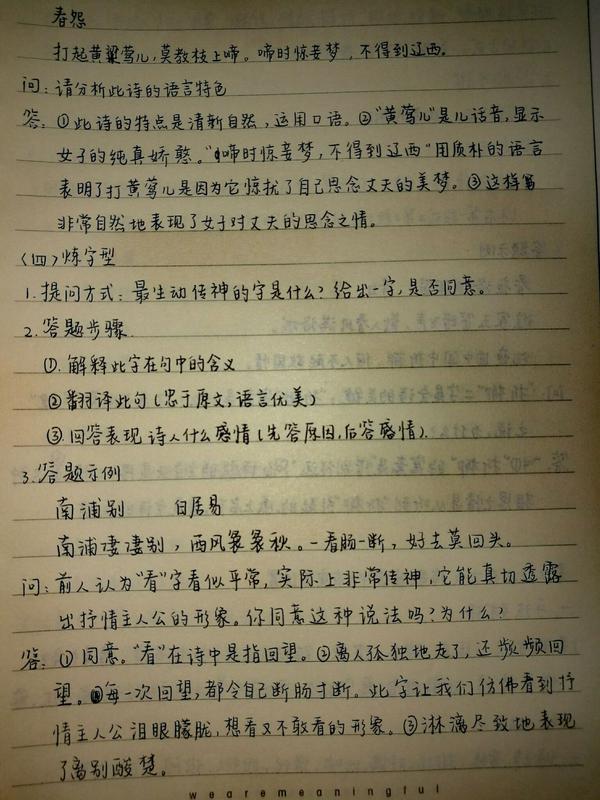 春怨
打起黄粱莺儿,莫教枝上啼。啼时惊妾梦,不得到辽西。
问:请分析此诗的语言特色
答:①此诗的特点是清新自然,运用口语。②"黄莺儿"是儿话音,显示
女子的纯真娇憨。"啼时惊妾梦,不得到辽西"用质朴的语言
表明了打黄莺儿是因为它惊扰了自己思念丈夫的美梦。③这样写
非常自然地表现了女子对丈夫的思念之情。
〈四〉炼字型
1.提问方式:最生动传神的字是什么?给出一字,是否同意。
2.答题步骤
①.解释此字在句中的含义
②翻译此句(忠于原文,语言优美)
③.回答表现诗人什么感情(先答原因,后答感情).
3.答题示例
南浦别 白居易
南浦凄凄别,西风袅袅秋。一看肠一断,好去莫回头。
问:前人认为"看"字看似平常,实际上非常传神,它能真切透露
出抒情主人公的形象。你同意这种说法吗?为什么?
答:①同意。"看"在诗中是指回望。②离人孤独地走了,还频频回
望。每一次回望,都令自己断肠寸断。此字让我们仿佛看到抒
情主人公泪眼朦胧,想看又不敢看的形象。③淋漓尽致地表现
了离别酸楚。
wearemeaningful